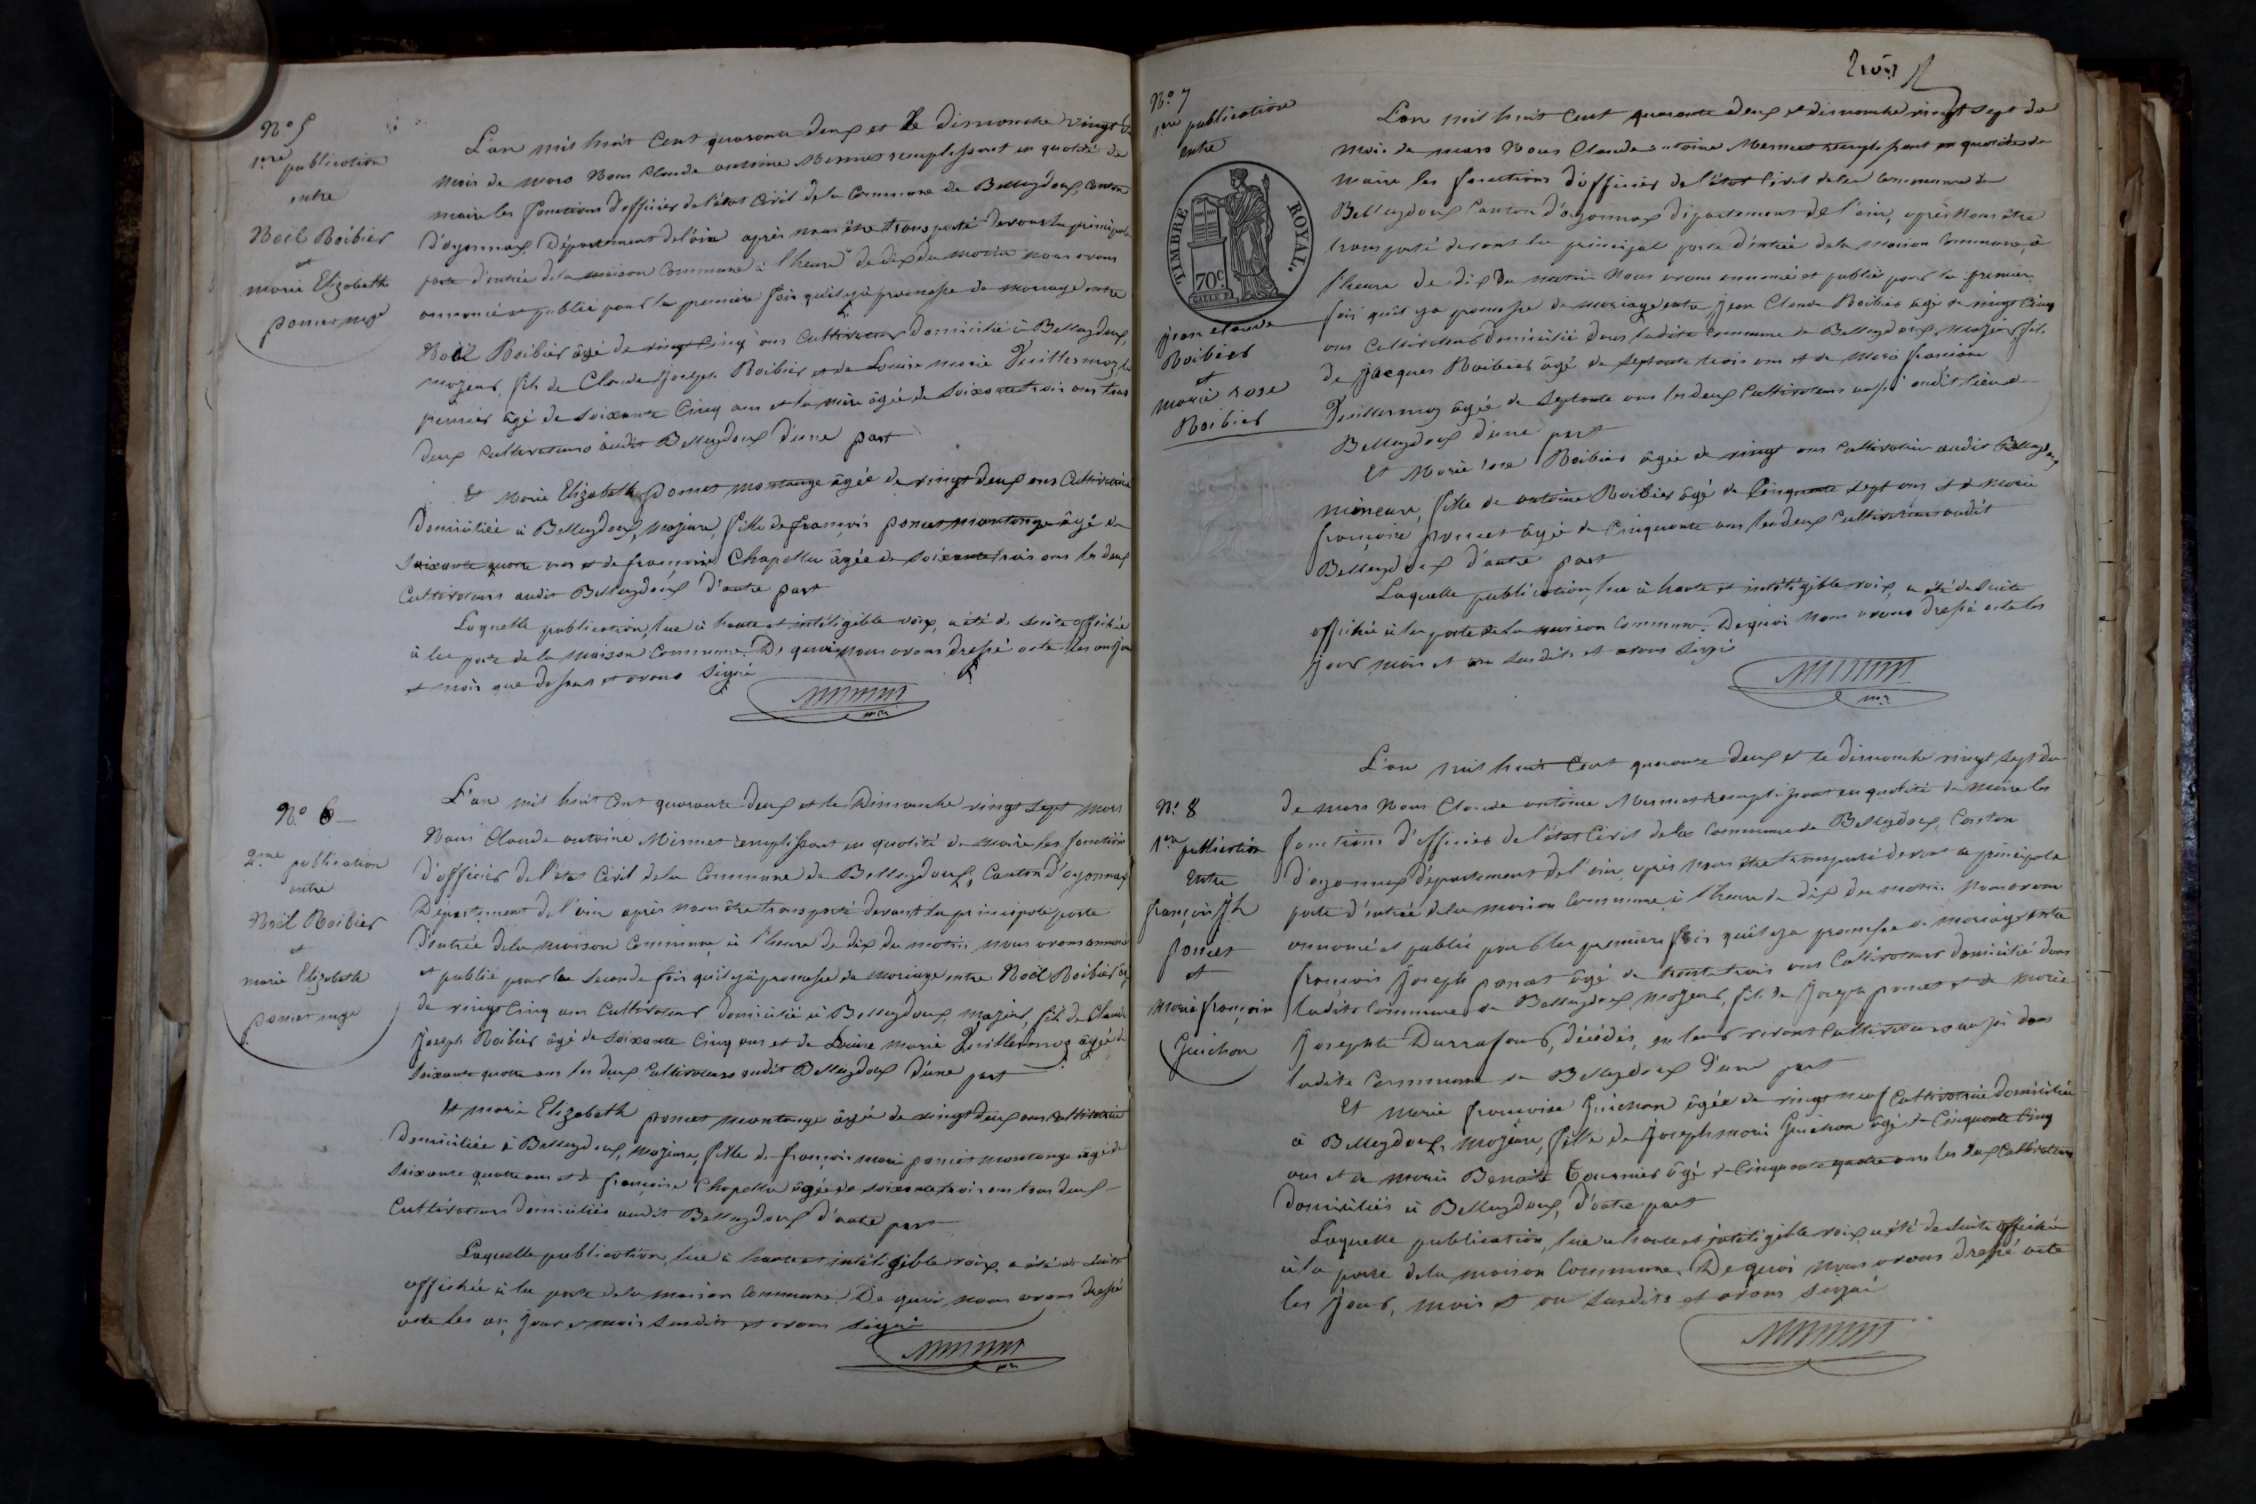 N.o 5
1.ere publication
entre
Noël Boibier
et
marie Elizabeth
poncet mge
L'an mil huit Cent quarante deux et le dimanche vingt
mois de mars Nous Claude antoine Mermet remplissant en qualité de
maire les fonctions d'officier de l'état Civil de la Commune de Belleydoux Canton
d'oyonnax Département de l'ain après nous être transporté devant la principale
porte d'entrée de la maison Commune à l'heure de dix du matin nous avons
annoncé et publié pour la première fois qu'il y a promesse de mariage entre
Noël Boibier âgé de vingt Cinq ans Cultivateur domicilié à Belleydoux,
majeur, fils de Claude Joseph Boibier et de Louise marie Vuillermoz le
premier âgé de soixante Cinq ans et la mère âgée de soixante trois ans tous
deux Cultivateurs audit Belleydoux d'une part
Et Marie Elizabeth poncet montange âgée de vingt deux ans Cultivatrice
Domiciliée à Belleydoux, Majeure, fille de françois poncet montange âgé de
soixante quatre ans et de françoise Chapellu âgée de soixante trois ans les deux
Cultivateurs audit Belleydoux d'autre part
Laquelle publication, lue à haute et intéligible voix, a été de suite affichée
à la porte de la maison Commune. De quoi nous avons dressé acte les an jour
et mois que dessus et avons signé
Mermet
N.o 6
2.me publication
entre
Noël Boibier
et
marie Elizabeth
poncet mge
L'an mil huit Cent quarante deux et le Dimanche vingt sept mars
Nous Claude antoine Mermet remplissant en qualité de maire les fonctions
d'officier de l'état Civil de la Commune de Belleydoux, Canton d'oyonnax
Département de l'ain après nous être transporté devant la principale porte
d'entrée de la maison Commune à l'heure de dix du matin nous avons annoncé
et publié pour la seconde fois qu'il y a promesse de mariage entre Noël Boibier âgé
de vingt Cinq ans Cultivateur domicilié à Belleydoux, majeur, fils de Claude
Joseph Boibier âgé de soixante Cinq ans et de Louise Marie Vuillermoz âgée de
soixante quatre ans les deux Cultivateurs audit Belleydoux d'une part
Et marie Elizabeth poncet montange âgée de vingt deux ans Cultivatrice
Domiciliée à Belleydoux, Majeure, fille de françois marie poncet montange âgé de
soixante quatre ans et de françoise Chapellu âgée de soixante trois ans tous deux
Cultivateurs domiciliés audit Belleydoux d'autre part
Laquelle publication, lue à haute et intéligible voix, a été de suite
affichée à la porte de la maison Commune. De quoi nous avons dressé
acte les an, jour et mois susdits et avons signé
Mermet
N.o 7
1.ere publication
entre
TIMBRE ROYAL.
70c
jean claude
Boibier
et
marie rose
Boibier
L'an mil huit Cent quarante deux et dimanche vingt sept du
Mois de mars Nous Claude antoine Mermet remplissant en qualité de
maire les fonctions d'officier de l'état Civil de la Commune de
Belleydoux Canton d'oyonnax département de l'ain, après nous être
transporté devant la principal porte d'entrée de la maison Commune, à
l'heure de dix du matin Nous avons annoncé et publié pour la premier
fois qu'il y a promesse de mariage entre jean Claude Boibier âgé de vingt Cinq
ans Cultivateur domicilié dans ladite Commune de Belleydoux, majeur, fils
de Jacques Boibier âgé de septante trois ans et de Marie françoise
Vuillermoz âgée de septante ans les deux Cultivateurs aussi audit lieu de
Belleydoux d'une part
Et Marie rose Boibier âgée de vingt ans Cultivatrice audit Belleydoux
mineure, fille de antoine Boibier âgé de Cinquante sept ans et de Marie
françoise poncet âgée de Cinquante ans les deux Cultivateurs audit
Belleydoux d'autre part
Laquelle publication, lue à haute et intéligible voix, a été de suite
affichée à la porte de la maison Commune. De quoi Nous avons dressé acte les
jour, mois et an susdits et avons signé
Mermet
N.o 8
1.ere publication
Entre
françois Jh
poncet
et
Marie françoise
Guichon
L'an mil huit Cent quarante deux et le dimanche vingt sept du
de mars Nous Claude antoine Mermet remplissant en qualité de maire les
fonctions d'officier de l'état Civil de la Commune de Belleydoux, Canton
d'oyonnax département de l'ain, après nous être transporté devant la principale
porte d'entrée de la maison Commune, à l'heure de dix du matin. Nous avons
annoncé et publié pour la premiere fois qu'il y a promesse de mariage entre
françois Joseph poncet âgé de trente trois ans Cultivateur domicilié dans
ladite Commune de Belleydoux, Majeur, fils de Joseph poncet et de Marie
Josephte Durrafour, décédés, en leur vivant Cultivateurs aussi dans
ladite Commune de Belleydoux d'une part
Et Marie françoise Guichon âgée de vingt neuf Cultivatrice domiciliée
à Belleydoux, Majeure, fille de Joseph marie Guichon âgé de Cinquante Cinq
ans et de marie Benoite Tournier âgé de Cinquante quatre ans les deux Cultivateurs
Domiciliés à Belleydoux, d'autre part
Laquelle publication, lue a haute et intéligible voix a été de suite affichée
à la porte de la maison Commune. De quoi nous avons dressé acte
les jour, mois et an susdits et avons signé
Mermet